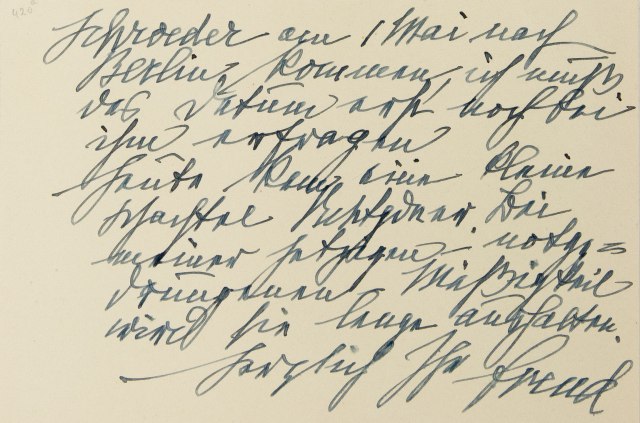 Schroeder am 1 Mai nach
Berlin kommen, ich muß
das Datum erst noch bei
ihm erfragen
Heute kam eine kleine
Schachtel Bei
meiner jetzigen notge=
drungenen Mäßigkeit
wird sie lange aushalten.
Herzlich Ihr Freud